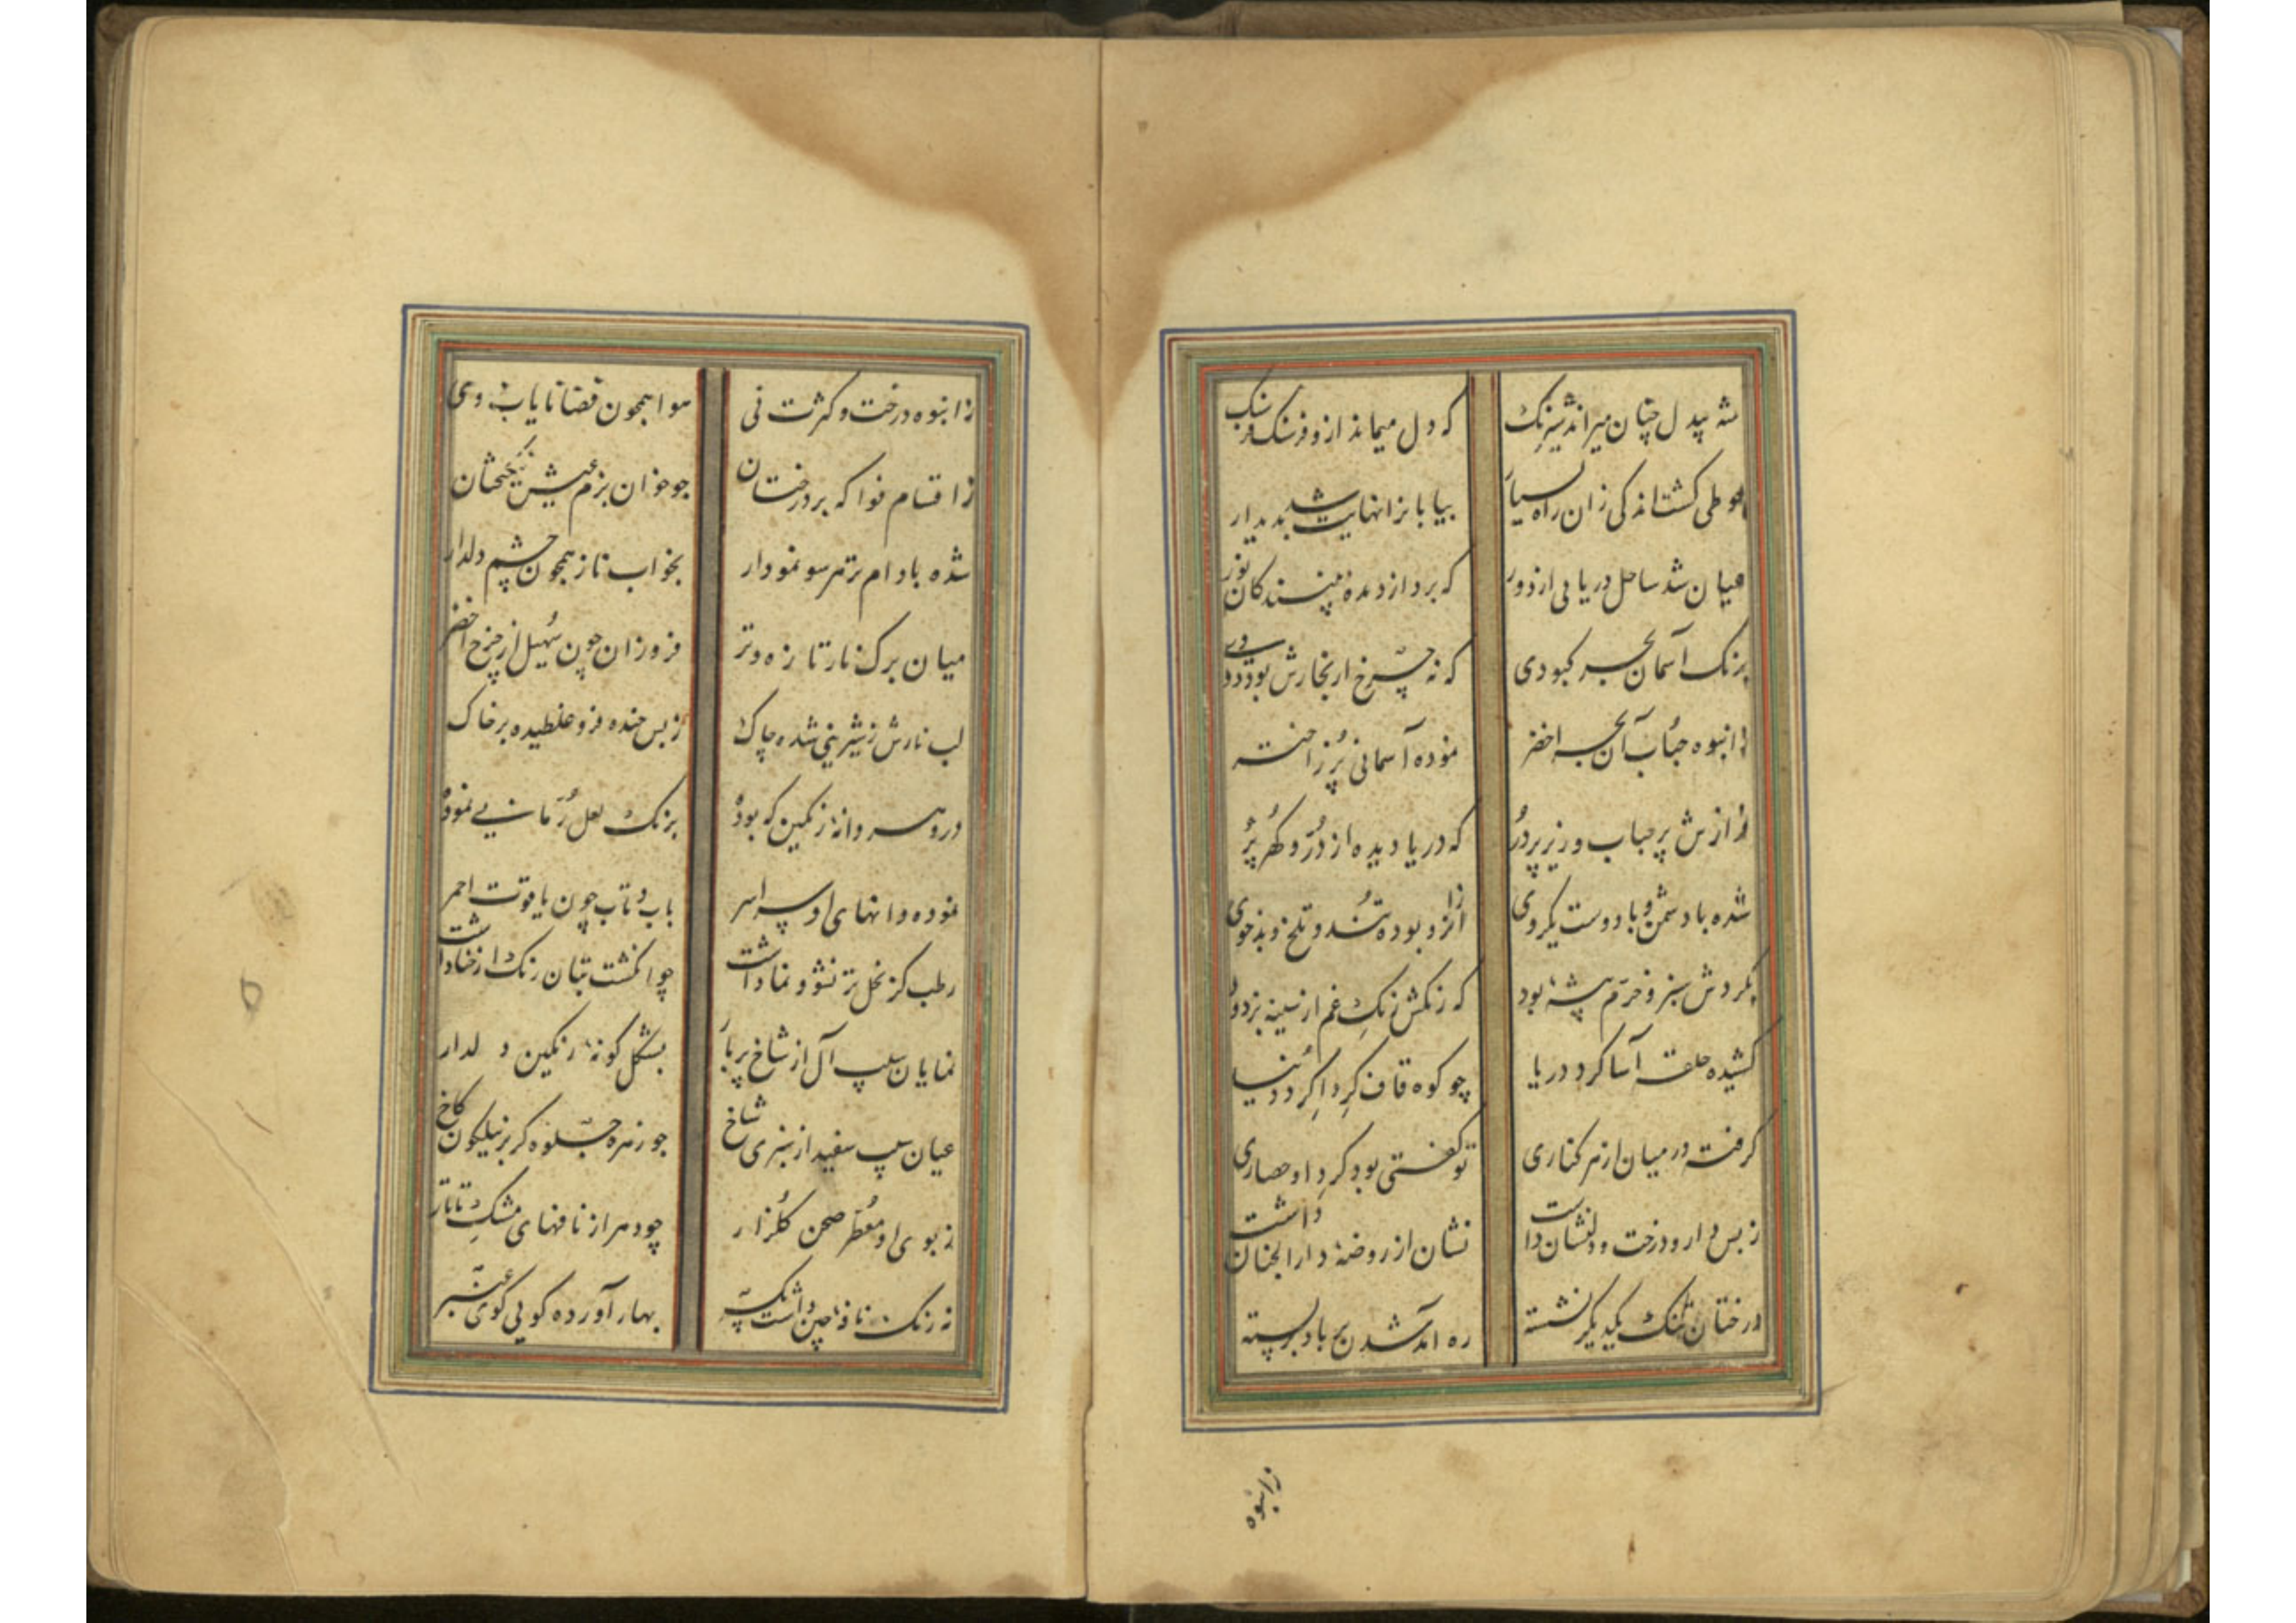 شه بیدل چنان میراند شبرنک
که دل میماند ازو فرسنک فرسنک
چو طی کشت اندکی زان راه بسیار
بیابانرا نهایت شد بدیدار
عیان شد ساحل دریایی از دور
که برد از دیده بینندکان نور
برنک آسمان بحر کبودی
که نه چرخ از بخارش بود دودی
ز انبوه حباب آن بحر اخضر
نموده آسمانی پُر ز اختر
فرازش پر حباب و زیر پر دُر
که دریا دیده از دُرّ و کهر پُر
شده با دشمن و با دوست یکروی
ازو بوده تُند و تلخ و بدخوی
بکردش سبز و خرّم بیشهٔ بود
که رنکش زنکِ غم از سینه بزدود
کشیده حلقه آسا کرد دریا
چو کوه قاف کِرداکِرد دنیا
کرفته در میان از هر کناری
تو کفتی بود کردِ او حصاری
ز بس دار و درخت و دلنشان داشت
نشان از روضهٔ دارالجنان داشت
درختان تنک یکدیکر نشسته
ره آمد شدن بر باد بسته
ز انبوه
ز انبوه درخت و کثرت نی
هوا همچون قضا نایاب در وی
ز اقسام فواکه بر درختان
چو خوان بزم عیش نیکبختان
شده بادام تر هر سو نمودار
بخواب ناز همچون چشم دلدار
میان برک نار تازه و تر
فروزان چون سُهیل از چرخ اخضر
لب نارش ز شیرینی شده چاک
ز بس خنده فرو غلطیده بر خاک
درو هر دانهٔ رنکین که بوده
برنک لعل رُمانی نموده
نموده دانهای او سراسر
باب و تاب چون یاقوت احمر
رطب کز نخل تر نشو و نما داشت
چو انکشت بتان رنک از حنا داشت
نمایان سیب آل از شاخ پر بار
بشکل کونهٔ رنکین دلدار
عیان سیب سفید از سبزی شاخ
چو زهره جلوه کر بر نیلکون کاخ
ز بوی او معطّر صحن کلزار
چو دهر از نافهای مشکِ تاتار
نه رنک نافهٔ چین داشت
بهار آورده کویی کوی عنبر